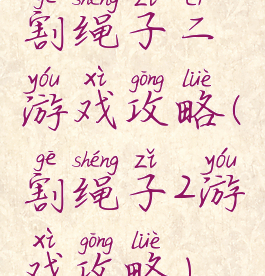 gē shéng zǐ èr
割绳子二
yóu xì gōng lüè
游戏攻略(
gē shéng zǐ yóu
割绳子2游
xì gōng lüè
戏攻略)